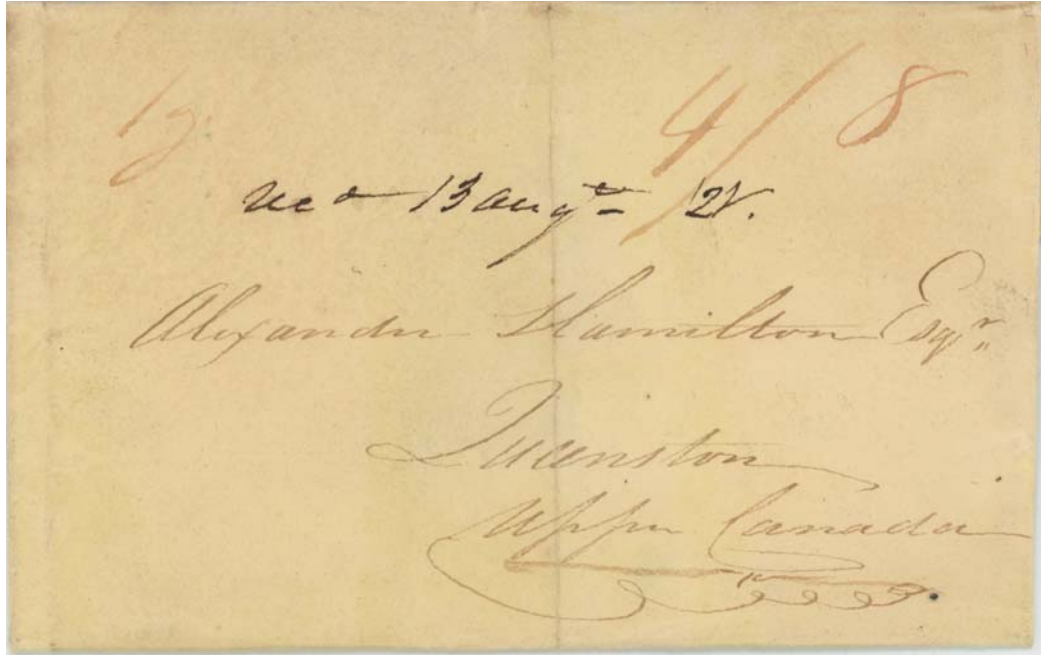 4/8
recd 13 augt
Alexander Hamilton Esqr
Queenston
Upper Canada